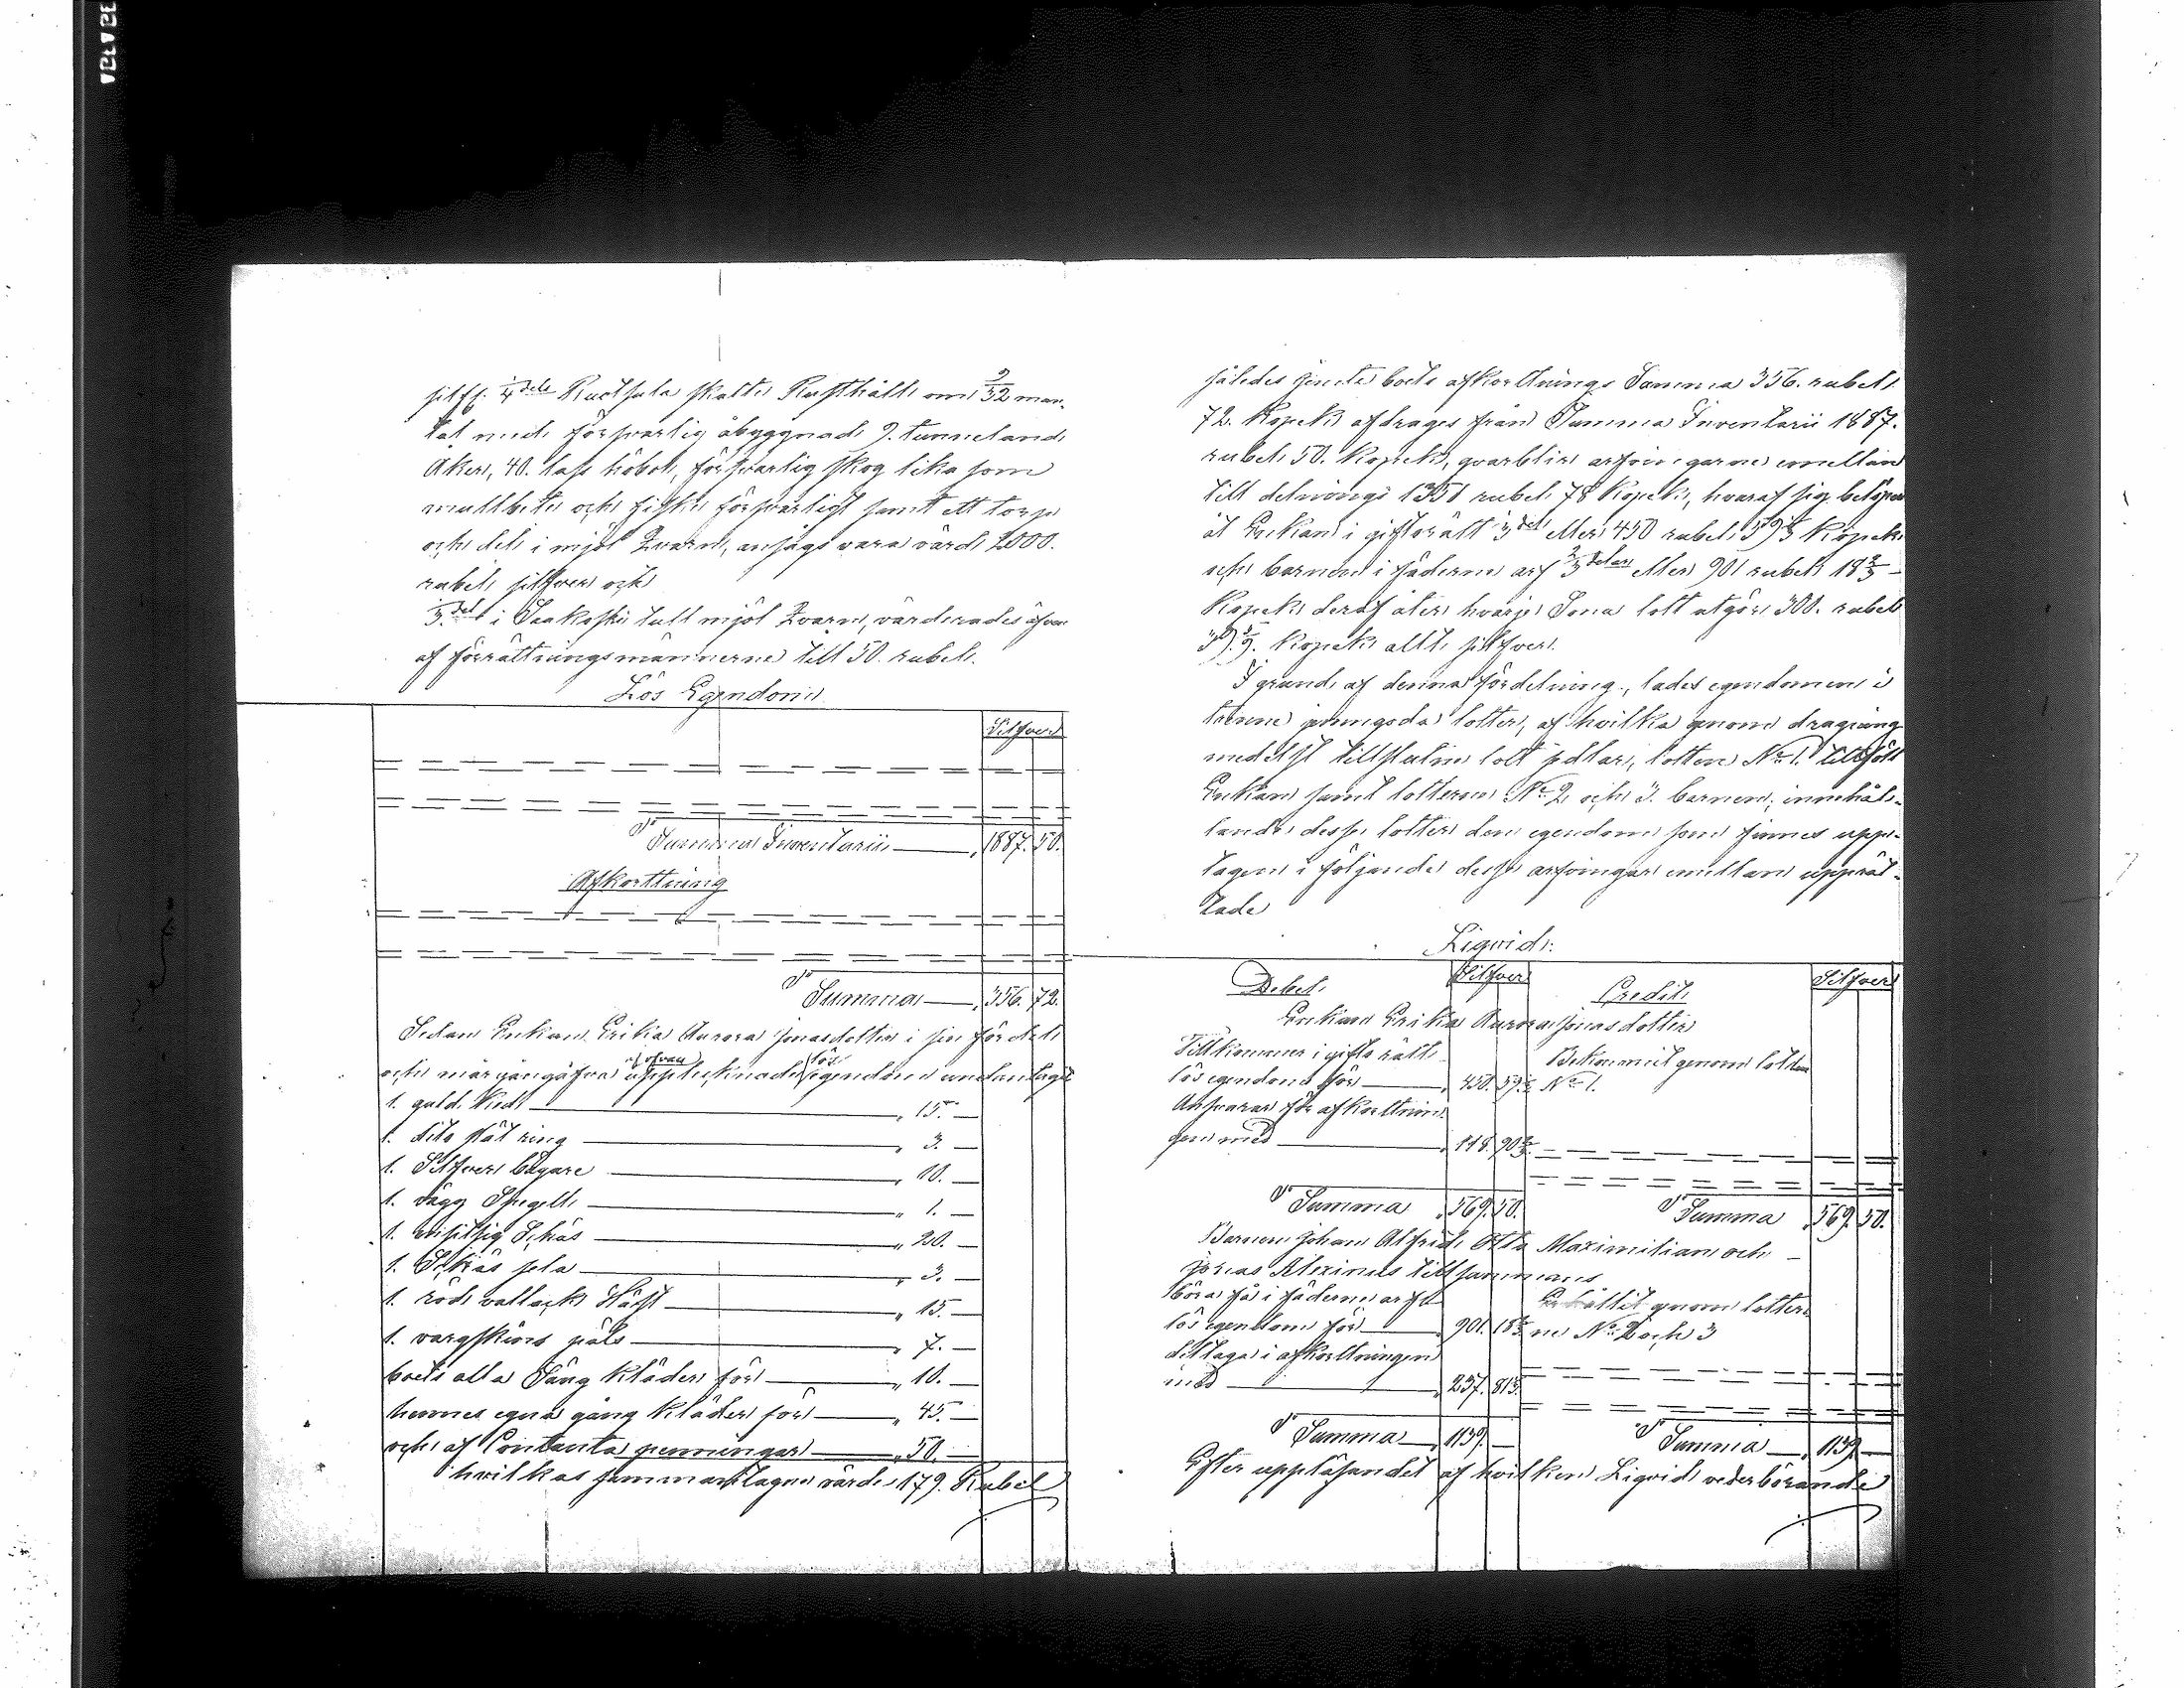 1/4 dels skatte Rusthåll om 2/32 man-
tal med försvarlig åbyggnad, 9. tunneland
Åker, 40. lass höbol, försvarlig skog lika som
mulbete och fiske försvarligt samt ett torp
och del i mjöl Qvarn, ansågs vara värd 2000.
rubel silfver och
1/3 del i tull mjöl Qvarn, värderades äfven
af förrättningsmännerne till 50. rubel.
Lös Egendom
Silfver
Summa Inventarii — 1887. 50.
Afkorttning
Summa — 356. 72.
Sedan Enkan Erika Aurora Jonasdotter i sin fördel
och morgongåfva af ofvan upptecknade lös egendom undantagit
1. guld Ked — " 15. —
1. dito slät ring — " 3. —
1. Silfver bägare — " 10. —
1. vägg Spegel — " 1. —
1. Schäs — " 20. —
1. Schäs sela — " 3. —
1. röd vallack Häst — " 15. —
1. vargskins päls — " 7. —
boets alla Säng kläder för — " 10. —
hennes egna gång kläder för — " 45. —
och af Contanta penningar — " 50. —
hvilkas sammanlagna värde 179. Rubel
således jemte boets afkorttnings Summa 356. rubel
72. Kopek afdrages från Summa Inventarii 1887.
rubel 50. Kopek, qvarblir arfvingarne emellan
till delnings 1351 rubel 78 Kopek, hvaraf sig belöper
åt Enkan i giftorätt 1/3 del eller 450 rubel 59 1/3 Kopek
och barnen i fäderne arf 2/3 delar eller 901 rubel 18 2/3
Kopek deraf åter hvarje Sona lott utgör 300. rubel
39 5/9. Kopek allt silfver.
I grund af denna fördelning, lades egendomen i
trenne jemngoda lotter, af hvilka genom dragning
medelst tillskurne lott sedlar, lotten No 1. tillföll
Enkan samt lotterne No 2 och 3. barnen, innehål-
lande desse lotter den egendom som finnes upp-
tagen i följande desse arfvingar emellan upprät-
tade
Liqvid:
Debet. Silfver Credit. Silfver
Enkan Erika Aurora Jonasdotter
Tillkommer i gifto rätt
lös egendom för — 450. 59 1/3
Ansvarar för afkorttnin-
gen med — 118. 90 2/3
Bekommit genom lotten
No 1.
Summa 569. 50. Summa 569. 50.
Barnen Johan Alfred, Otto Maximilian och
Jonas Alexius tillsammans
böra få i fäderne arf
lös egendom för — 901. 18 2/3
deltaga i afkorttningen
med — 237. 81 1/3
Erhållit genom lotter-
ne No 2 och 3
Summa — 1139. — Summa — 1139. —
Efter uppläsandet af hvilken Liqvid vederbörande